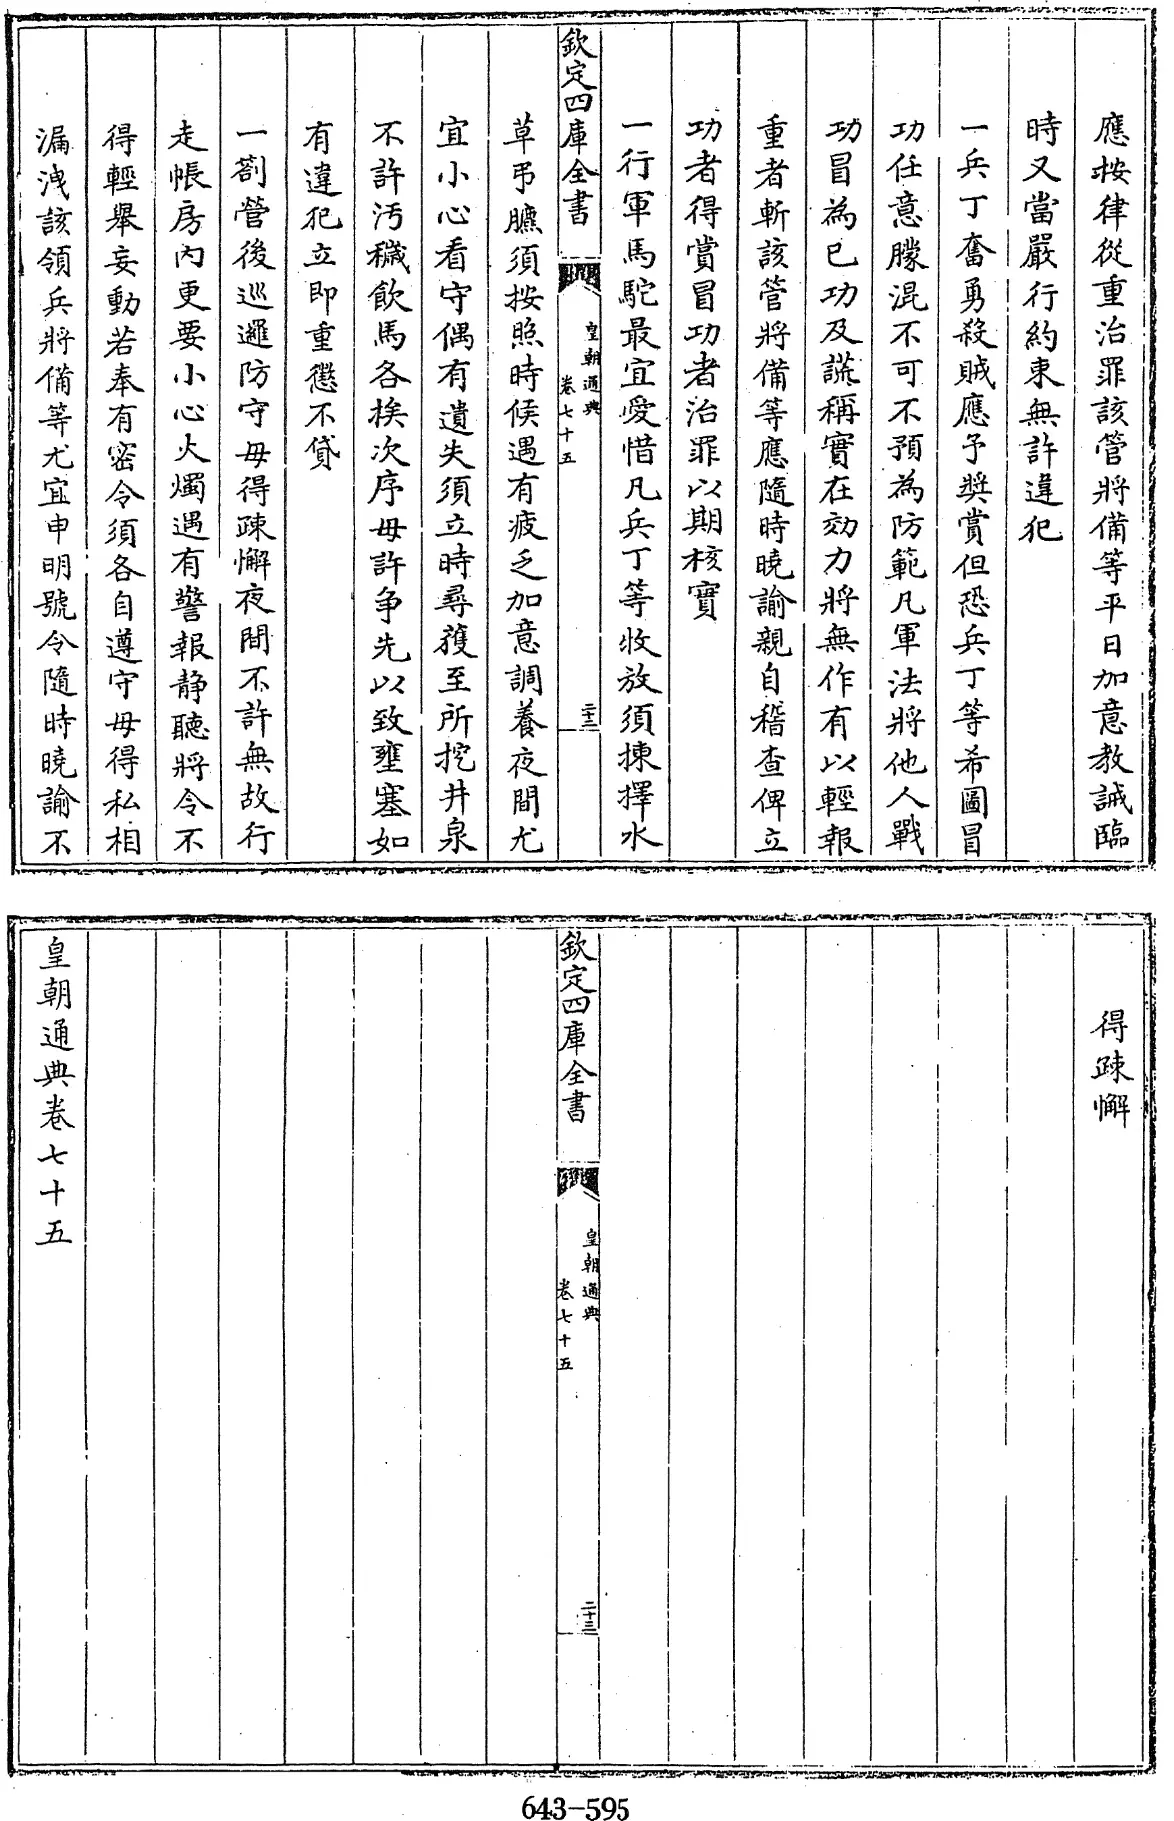 應按律從重治罪該管將備等平日加意教誡臨
時又當嚴行約束無許違犯
一兵丁奮勇殺賊應予奬賞但恐兵丁等希圖冒
功任意朦混不可不預為防範凡軍法將他人戰
功冒為已功及謊稱實在効力將無作有以輕報
重者斬該管將備等應隨時曉諭親自稽查俾立
功者得賞冒功者治罪以期核實
一行軍馬駝最宜愛惜凡兵丁等收放須揀擇水
欽定四庫全書
皇朝通典
卷七十五
二十三
草弔臕須按照時候遇有疲乏加意調養夜間尤
宜小心看守偶有遺失須立時尋獲至所挖井泉
不許汚穢飲馬各挨次序毋許争先以致壅塞如
有違犯立即重懲不貸
一劄營後巡邏防守毋得疎懈夜間不許無故行
走帳房内更要小心火燭遇有警報静聽將令不
得輕舉妄動若奉有密令須各自遵守毋得私相
漏洩該領兵將備等尤宜申明號令隨時曉諭不
得疎懈
欽定四庫全書
皇朝通典
卷七十五
二十三
皇朝通典卷七十五
643-595